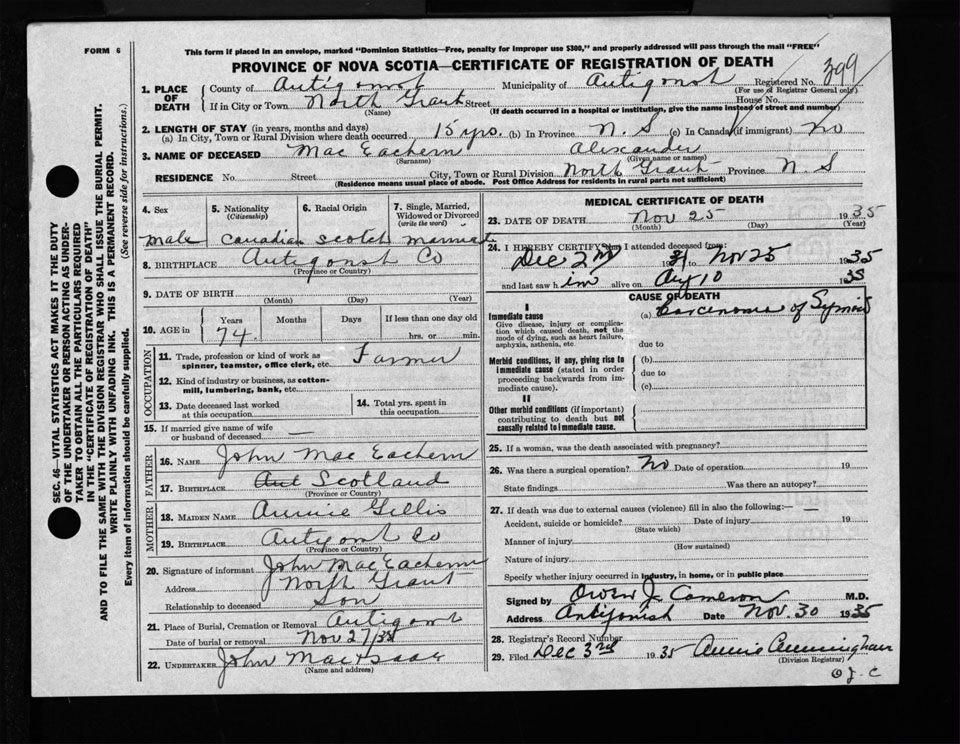 FORM 6
This form if placed in an envelope, marked "Dominion Statistics—Free, penalty for improper use $300," and properly addressed will pass through the mail "FREE"
PROVINCE OF NOVA SCOTIA—CERTIFICATE OF REGISTRATION OF DEATH
399
1. PLACE OF DEATH
County of Antigonish Municipality of Antigonish Registered No.
(For use of Registrar General only)
If in City or Town North Grant Street House No.
(Name) (If death occurred in a hospital or institution, give the name instead of street and number)
2. LENGTH OF STAY (in years, months and days)
(a) In City, Town or Rural Division where death occurred 15 yrs. (b) In Province N. S (c) In Canada (if immigrant) no
3. NAME OF DECEASED Mac Eachern Alexander
(Surname) (Given name or names)
RESIDENCE No. Street City, Town or Rural Division North Grant Province N S
(Residence means usual place of abode. Post Office Address for residents in rural parts not sufficient)
4. Sex
male
5. Nationality
(Citizenship)
Canadian
6. Racial Origin
Scotch
7. Single, Married, Widowed or Divorced
(write the word)
8. BIRTHPLACE Antigonish Co
(Province or Country)
9. DATE OF BIRTH
(Month) (Day) (Year)
10. AGE in
Years Months Days If less than one day old
74. hrs. or min.
OCCUPATION
11. Trade, profession or kind of work as spinner, teamster, office clerk, etc. Farmer
12. Kind of industry or business, as cotton-mill, lumbering, bank, etc.
13. Date deceased last worked at this occupation
14. Total yrs. spent in this occupation
15. If married give name of wife or husband of deceased —
FATHER
16. NAME John Mac Eachern
17. BIRTHPLACE Ant Scotland
(Province or Country)
MOTHER
18. MAIDEN NAME Annie Gillis
19. BIRTHPLACE Antigonish Co
(Province or Country)
20. Signature of informant John Mac Eachern
Address North Grant
Relationship to deceased Son
21. Place of Burial, Cremation or Removal Antigonish
Date of burial or removal Nov 27/35
22. UNDERTAKER John MacIsaac
(Name and address)
MEDICAL CERTIFICATE OF DEATH
23. DATE OF DEATH Nov 25 1935
(Month) (Day) (Year)
24. I HEREBY CERTIFY that I attended deceased from:
Dec 2nd to Nov 25 1935
and last saw him alive on Aug 10 1935
CAUSE OF DEATH
I
Immediate cause
Give disease, injury or complication which caused death, not the mode of dying, such as heart failure, asphyxia, asthenia, etc.
(a) Carcinoma of
due to
Morbid conditions, if any, giving rise to immediate cause (stated in order proceeding backwards from immediate cause).
(b)
due to
(c)
II
Other morbid conditions (if important) contributing to death but not causally related to immediate cause.
25. If a woman, was the death associated with pregnancy?
26. Was there a surgical operation? No Date of operation 19
State findings Was there an autopsy?
27. If death was due to external causes (violence) fill in also the following:—
Accident, suicide or homicide? Date of injury 19
(State which)
Manner of injury
(How sustained)
Nature of injury
Specify whether injury occurred in industry, in home, or in public place
Signed by Owen J. Cameron M.D.
Address Antigonish Date Nov. 30 1935
28. Registrar's Record Number
29. Filed Dec 3rd 1935 Annie Cunningham
(Division Registrar)
J. C
SEC. 46—VITAL STATISTICS ACT MAKES IT THE DUTY
OF THE UNDERTAKER OR PERSON ACTING AS UNDER-
TAKER TO OBTAIN ALL THE PARTICULARS REQUIRED
IN THE "CERTIFICATE OF REGISTRATION OF DEATH"
AND TO FILE THE SAME WITH THE DIVISION REGISTRAR WHO SHALL ISSUE THE BURIAL PERMIT.
WRITE PLAINLY WITH UNFADING INK. THIS IS A PERMANENT RECORD.
Every item of information should be carefully supplied. (See reverse side for instructions.)